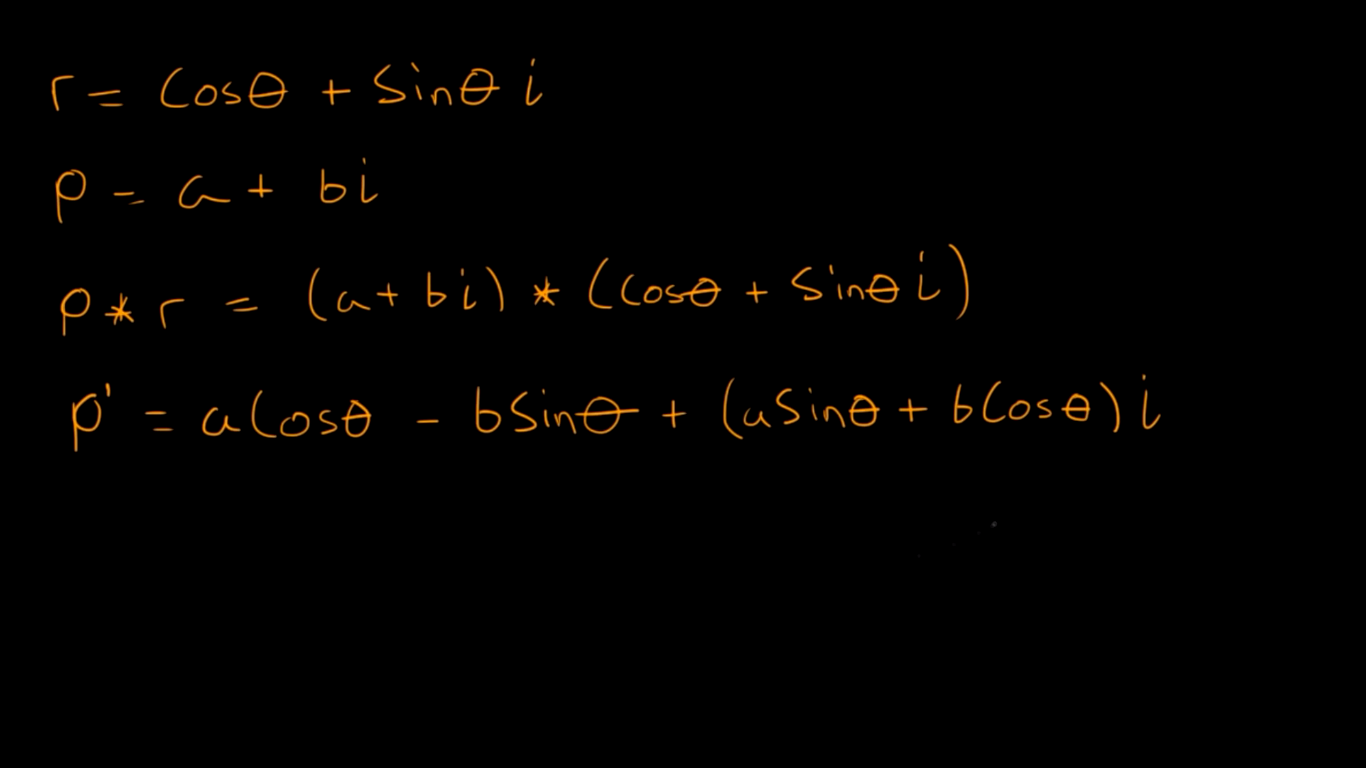 r = Cosθ + Sinθ i
p = a + bi
p * r = (a + bi) * (Cosθ + Sinθ i)
p' = aCosθ - bSinθ + (aSinθ + bCosθ) i